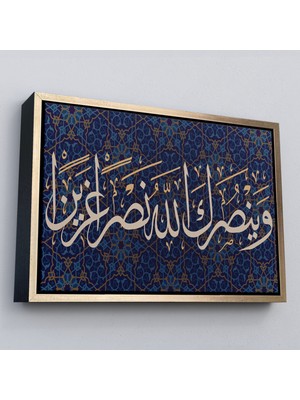 وَيَنْصُرَكَ اللَّهُ نَصْرًا عَزِيزًا